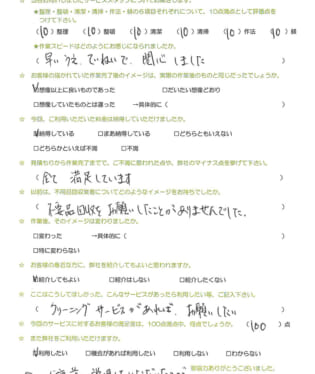 ★整理・整頓・清潔・清掃・作法・躾の6項目それぞれについて、10点満点として評価点を
つけて下さい。
(10)整理 (10)整頓 (10)清潔 (10)清掃 (10)作法 10)躾
★作業スピードはどのようにお感じになられましたか。
(早いうえ、ていねいで、関心しました
☆ お客様の描かれていた作業完了後のイメージは、実際の作業後のものと同じだったでしょうか。
☑想像以上に良いものであった □だいたい想像どおり
□想像していたものとは違った →具体的に(
☆ 今回、ご利用いただいた料金は納得していただけましたか。
☑納得している □まあ納得している □どちらともいえない
□どちらかといえば不満 □不満
☆ 見積もりから作業完了までで、ご不満に思われた点や、弊社のマイナス点を挙げて下さい。
(全て 満足しています )
☆ 以前は、不用品回収業者についてどのようなイメージをお持ちでしたか。
(不要品回収をお願いしたことがありませんでした。
☆ 作業後、そのイメージは変わりましたか。
□変わった →具体的に( )
□特に変わらない
☆ お客様の身近な方に、弊社を紹介してもよいと思われますか。
☑紹介してもよい □紹介はしない □紹介したくない
☆ ここはこうしてほしかった、こんなサービスがあったら利用したい等、ご記入下さい。
(クリーニングサービスがあれば、お願いしたい )
☆ 今回のサービスに対するお客様の満足度は、100点満点中、何点でしょうか。(100)点
☆ また弊社をご利用いただけますか。
☑利用したい □機会があれば利用したい □利用しない □わからない
御協力ありがとうございました。